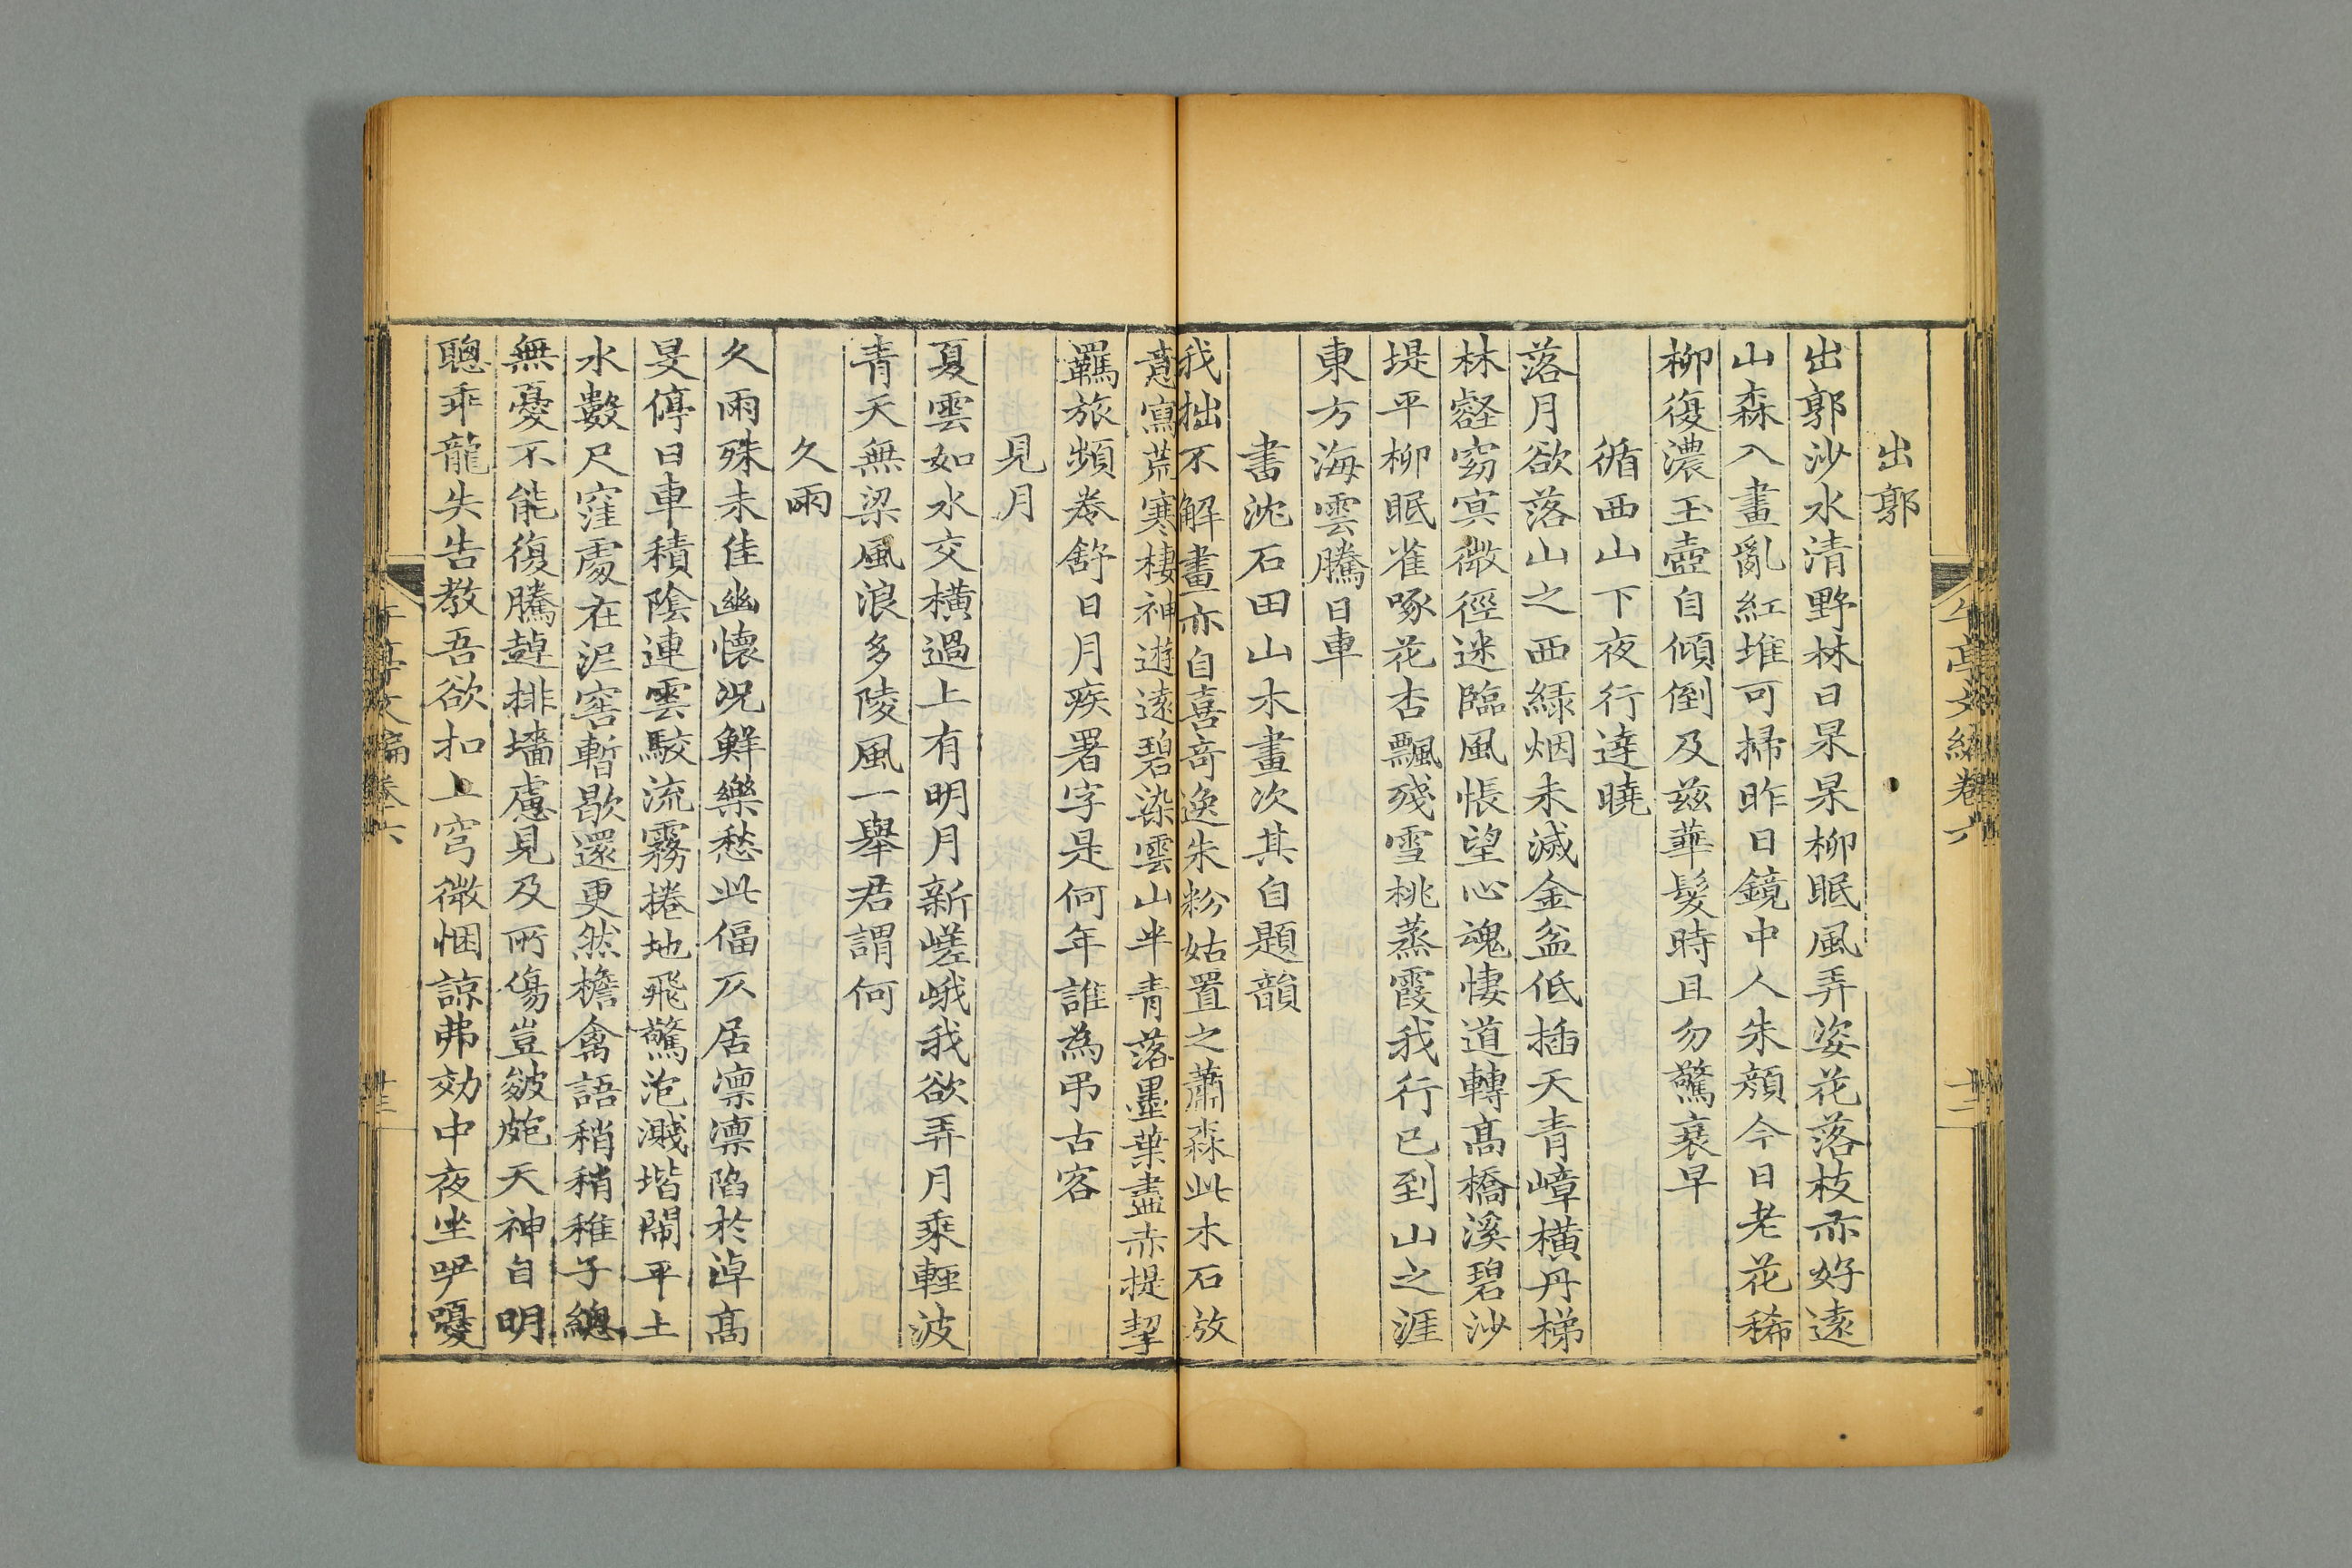 午亭文編卷六
十二
出郭
出郭沙水清野林日杲杲柳眠風弄姿花落枝亦好遠
山森入畫亂紅堆可掃昨日鏡中人朱顏今日老花稀
柳復濃玉壺自傾倒及茲華髮時且勿驚衰早
循西山下夜行達曉
落月欲落山之西綠烟未滅金盆低插天青嶂橫丹梯
林壑窈冥微徑迷臨風悵望心魂悽道轉髙橋溪碧沙
堤平柳眠雀啄花杏飄殘雪桃蒸霞我行已到山之涯
東方海雲騰日車
書沈石田山水畫次其自題韻
我拙不解畫亦自喜竒逸朱粉姑置之蕭森此木石放
意寫荒寒棲神遊遠碧染雲山半青落墨葉盡赤提挈
羈旅頻卷舒日月疾署字是何年誰為弔古客
見月
夏雲如水交橫過上有明月新嵯峨我欲弄月乘輕波
青天無梁風浪多陵風一舉君謂何
久雨
久雨殊未佳幽懷况鮮樂愁此偪仄居凛凛陷於淖髙
旻停日車積陰連雲駮流霧捲地飛驚泡濺堦鬧平土
水數尺窪處在泥窖暫歇還更然檐禽語稍稍稚子總
無憂不能復騰趠排墻慮見及所傷豈皴皰天神自明
聰乖龍失告教吾欲扣上穹微悃諒弗効中夜坐吚嚘
午亭文編卷六
十三